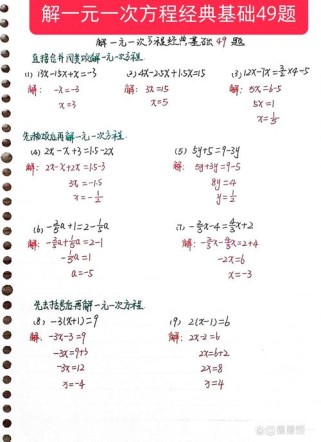 解一元一次方程经典基础49题
解一元一次方程经典基础49题
直接合并同类项解一元一次方程
(1) 13x-15x+x=-3 (2) 4x-2.5x+1.5x=15 (3) 12x-7x=3/2×4-5
解: -x=-3 解: 3x=15 解: 5x=6-5
x=3 x=5 5x=1
x=1/5
先移项后再解一元一次方程
(4) 2x-x+3=1.5-2x (5) 5y+5=9-3y
解: 2x-x+2x=1.5-3 解: 5y+3y=9-5
3x=-1.5 8y=4
x=-1/2 y=1/2
(6) -2/5a+1=2-1/5a (7) -2/5x-4=4/5x+2
解: -2/5a+1/5a=2-1 解: -2/5x-4/5x=2+4
-1/5a=1 -2x=6
a=-5 x=-3
先去括号后再解一元一次方程
(8) -3(x+1)=9 (9) 2(x-1)=6
解: -3x-3=9 解: 2x-2=6
-3x=9+3 2x=6+2
-3x=12 2x=8
x=-4 x=4